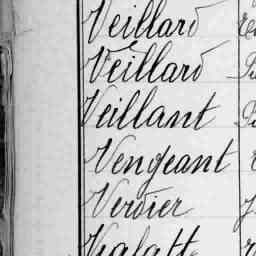 Veillard
Veillard
Veillant
Vengeant
Verdier